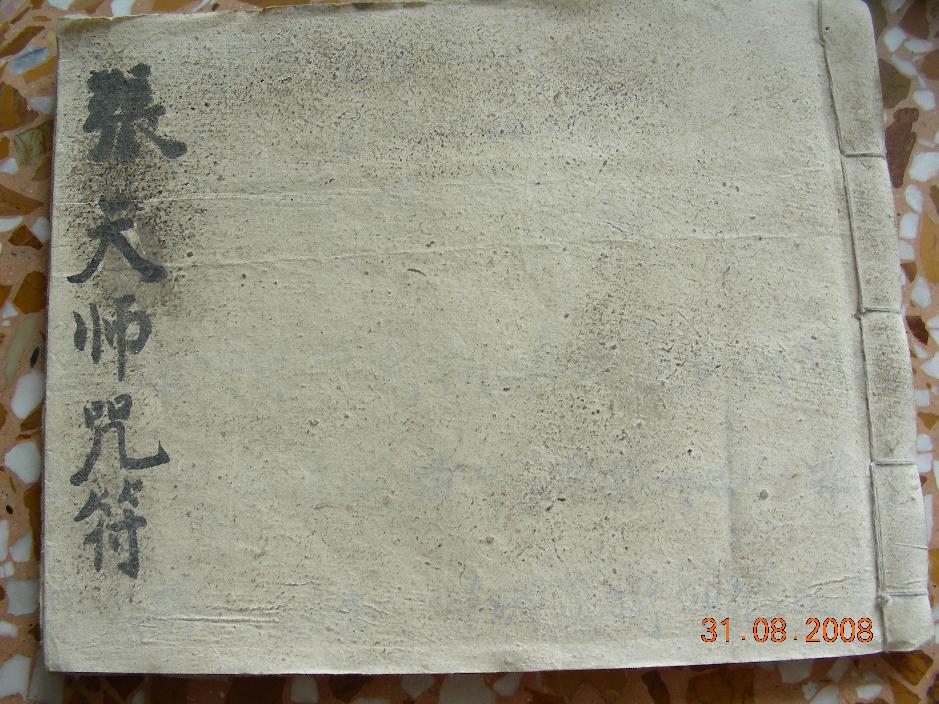 張天师咒符
31.08.2008